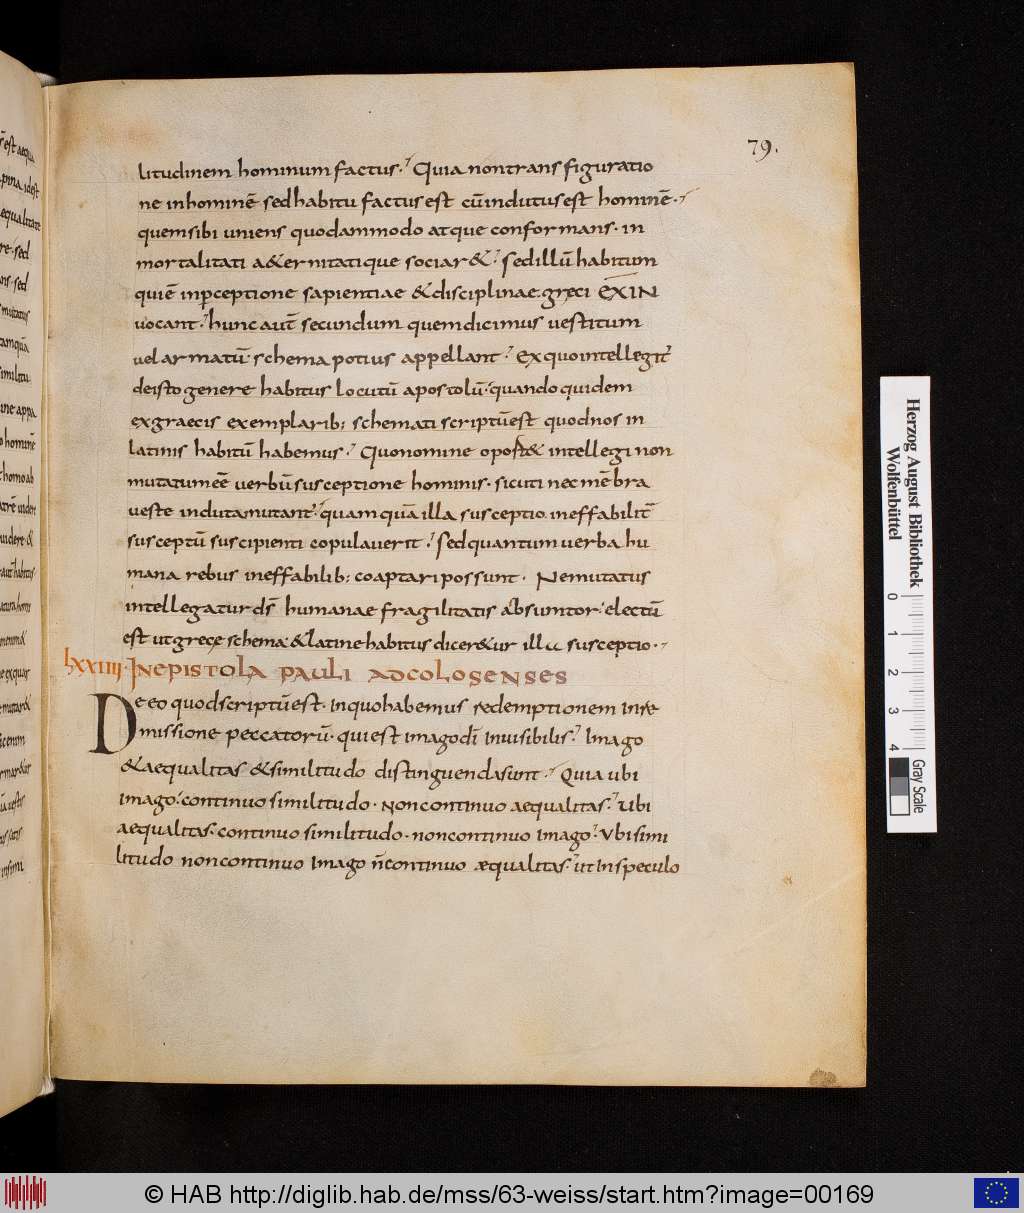 79.
litudinem hominum factus. Quia non transfiguratio
ne in hominē sed habitu factus est cū indutus est hominē.
quem sibi uniens quodammodo atque conformans. in
mortalitati a&ernitatique sociar&. Sed illū habitum
quiē in ꝑceptione sapientiae & disciplinae. gręci EXIN
vocant. hunc aut̄ secundum quem dicimus vestitum
vel armatū. schema potius appellant. Ex quo intellegit̄
de isto genere habitus locutū apostolū. quando quidem
ex graecis exemplarib; schemati scriptū est quod nos in
latinis habitū habemus. Quo nomine oport& intellegi non
mutatum eē verbū susceptione hominis. sicuti nec mēbra
veste induta mutant̄. quamquā illa susceptio ineffabilit̄
susceptū suscipienti copulaverit. Sed quantum verba hu
mana rebus ineffabilib; coaptari possunt. Ne mutatus
intellegatur dš humanae fragilitatis absumtor. electū
est ut gręce schema. & latine habitus dicer&ur illa susceptio.
lxxiiii. IN EPISTOLA PAULI AD COLOSENSES
De eo quod scriptū est. in quo habemus redemptionem in re
missione peccatorū. qui est imago di̅ invisibilis. Imago
& aequalitas & similitudo distinguenda sunt. Quia ubi
imago. continuo similitudo. non continuo aequalitas. Ubi
aequalitas. continuo similitudo. non continuo imago. Ubi simi
litudo non continuo imago n̄ continuo æqualitas. ut in speculo
Herzog August Bibliothek
Wolfenbüttel
0 1 2 3 4
Gray Scale
© HAB http://diglib.hab.de/mss/63-weiss/start.htm?image=00169